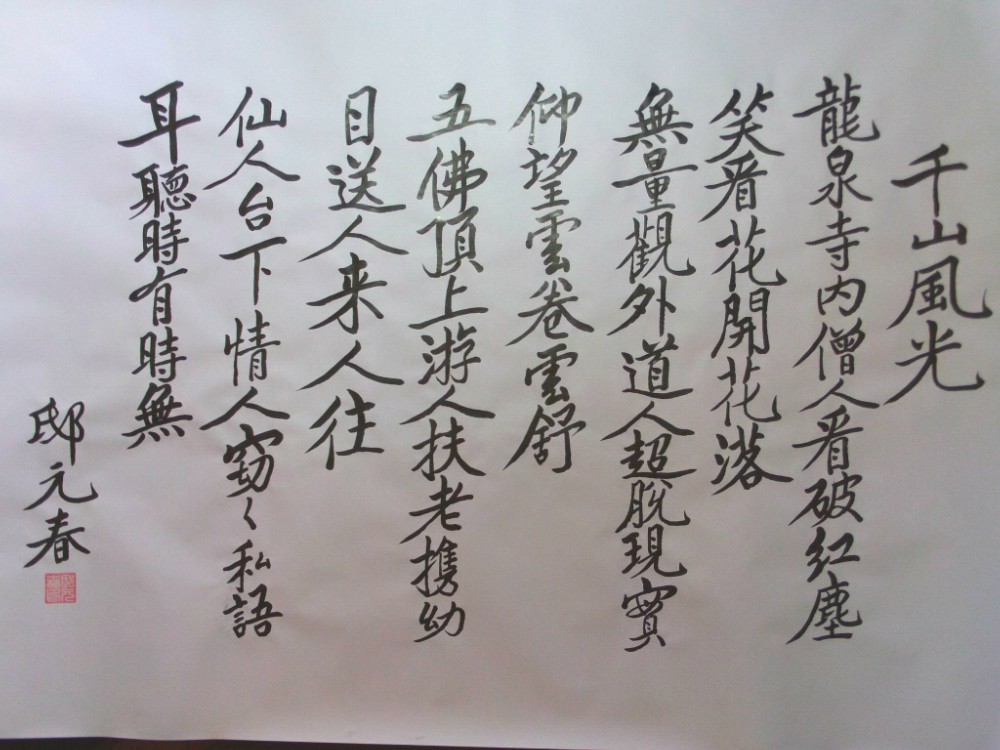 千山風光
龍泉寺内僧人看破红塵
笑看花開花落
無量觀外道人超脫現實
仰望雲卷雲舒
五佛頂上游人扶老携幼
目送人来人往
仙人台下情人窃々私語
耳聽時有時無
邸元春